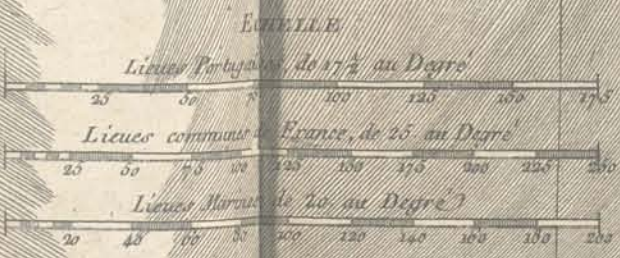 ECHELLE
Lieues Portugaises, de 17½ au Degré
25 50 75 100 125 150 175
Lieues communes de France, de 25 au Degré
25 50 75 100 125 150 175 200 225 250
Lieues Marines de 20 au Degré
20 40 60 80 100 120 140 160 180 200